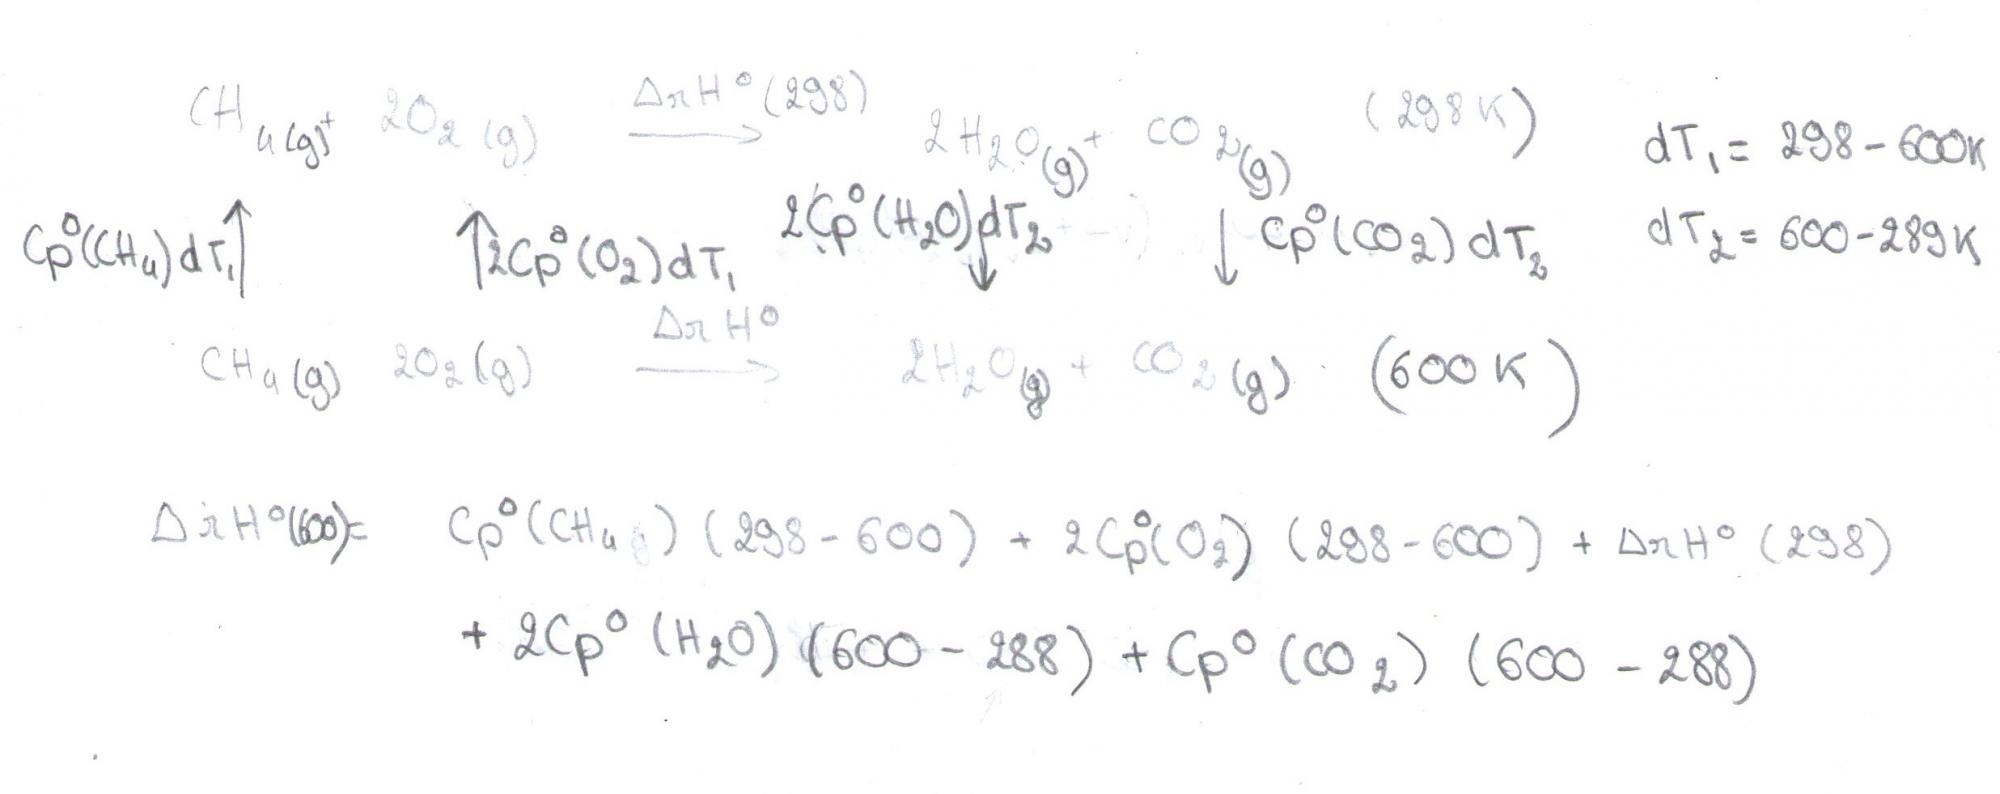 CH4(g) + 2O2(g) ΔrH°(298) → 2H2O(g) + CO2(g) (298K) dT1 = 298-600K
Cp°(CH4)dT1 ↑ ↑ 2Cp°(O2)dT1 2Cp°(H2O)dT2 ↓ ↓ Cp°(CO2)dT2 dT2 = 600-289K
CH4(g) 2O2(g) ΔrH° → 2H2O(g) + CO2(g) (600K)
ΔrH°(600)= Cp°(CH4) (298-600) + 2Cp°(O2) (298-600) + ΔrH°(298)
+ 2Cp°(H2O) (600-288) + Cp°(CO2) (600-288)